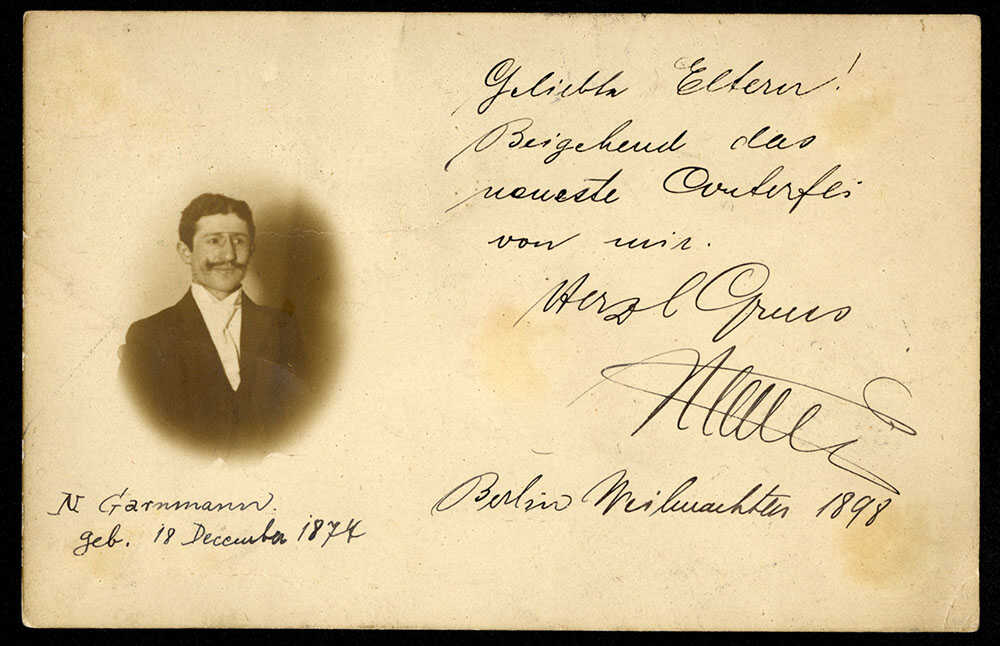 Geliebte Eltern!
Beigehend das
neueste Conterfei
von mir.
Herzl Gruss
Berlin Weihnachten 1898
N Garnmann.
geb. 18 December 1874